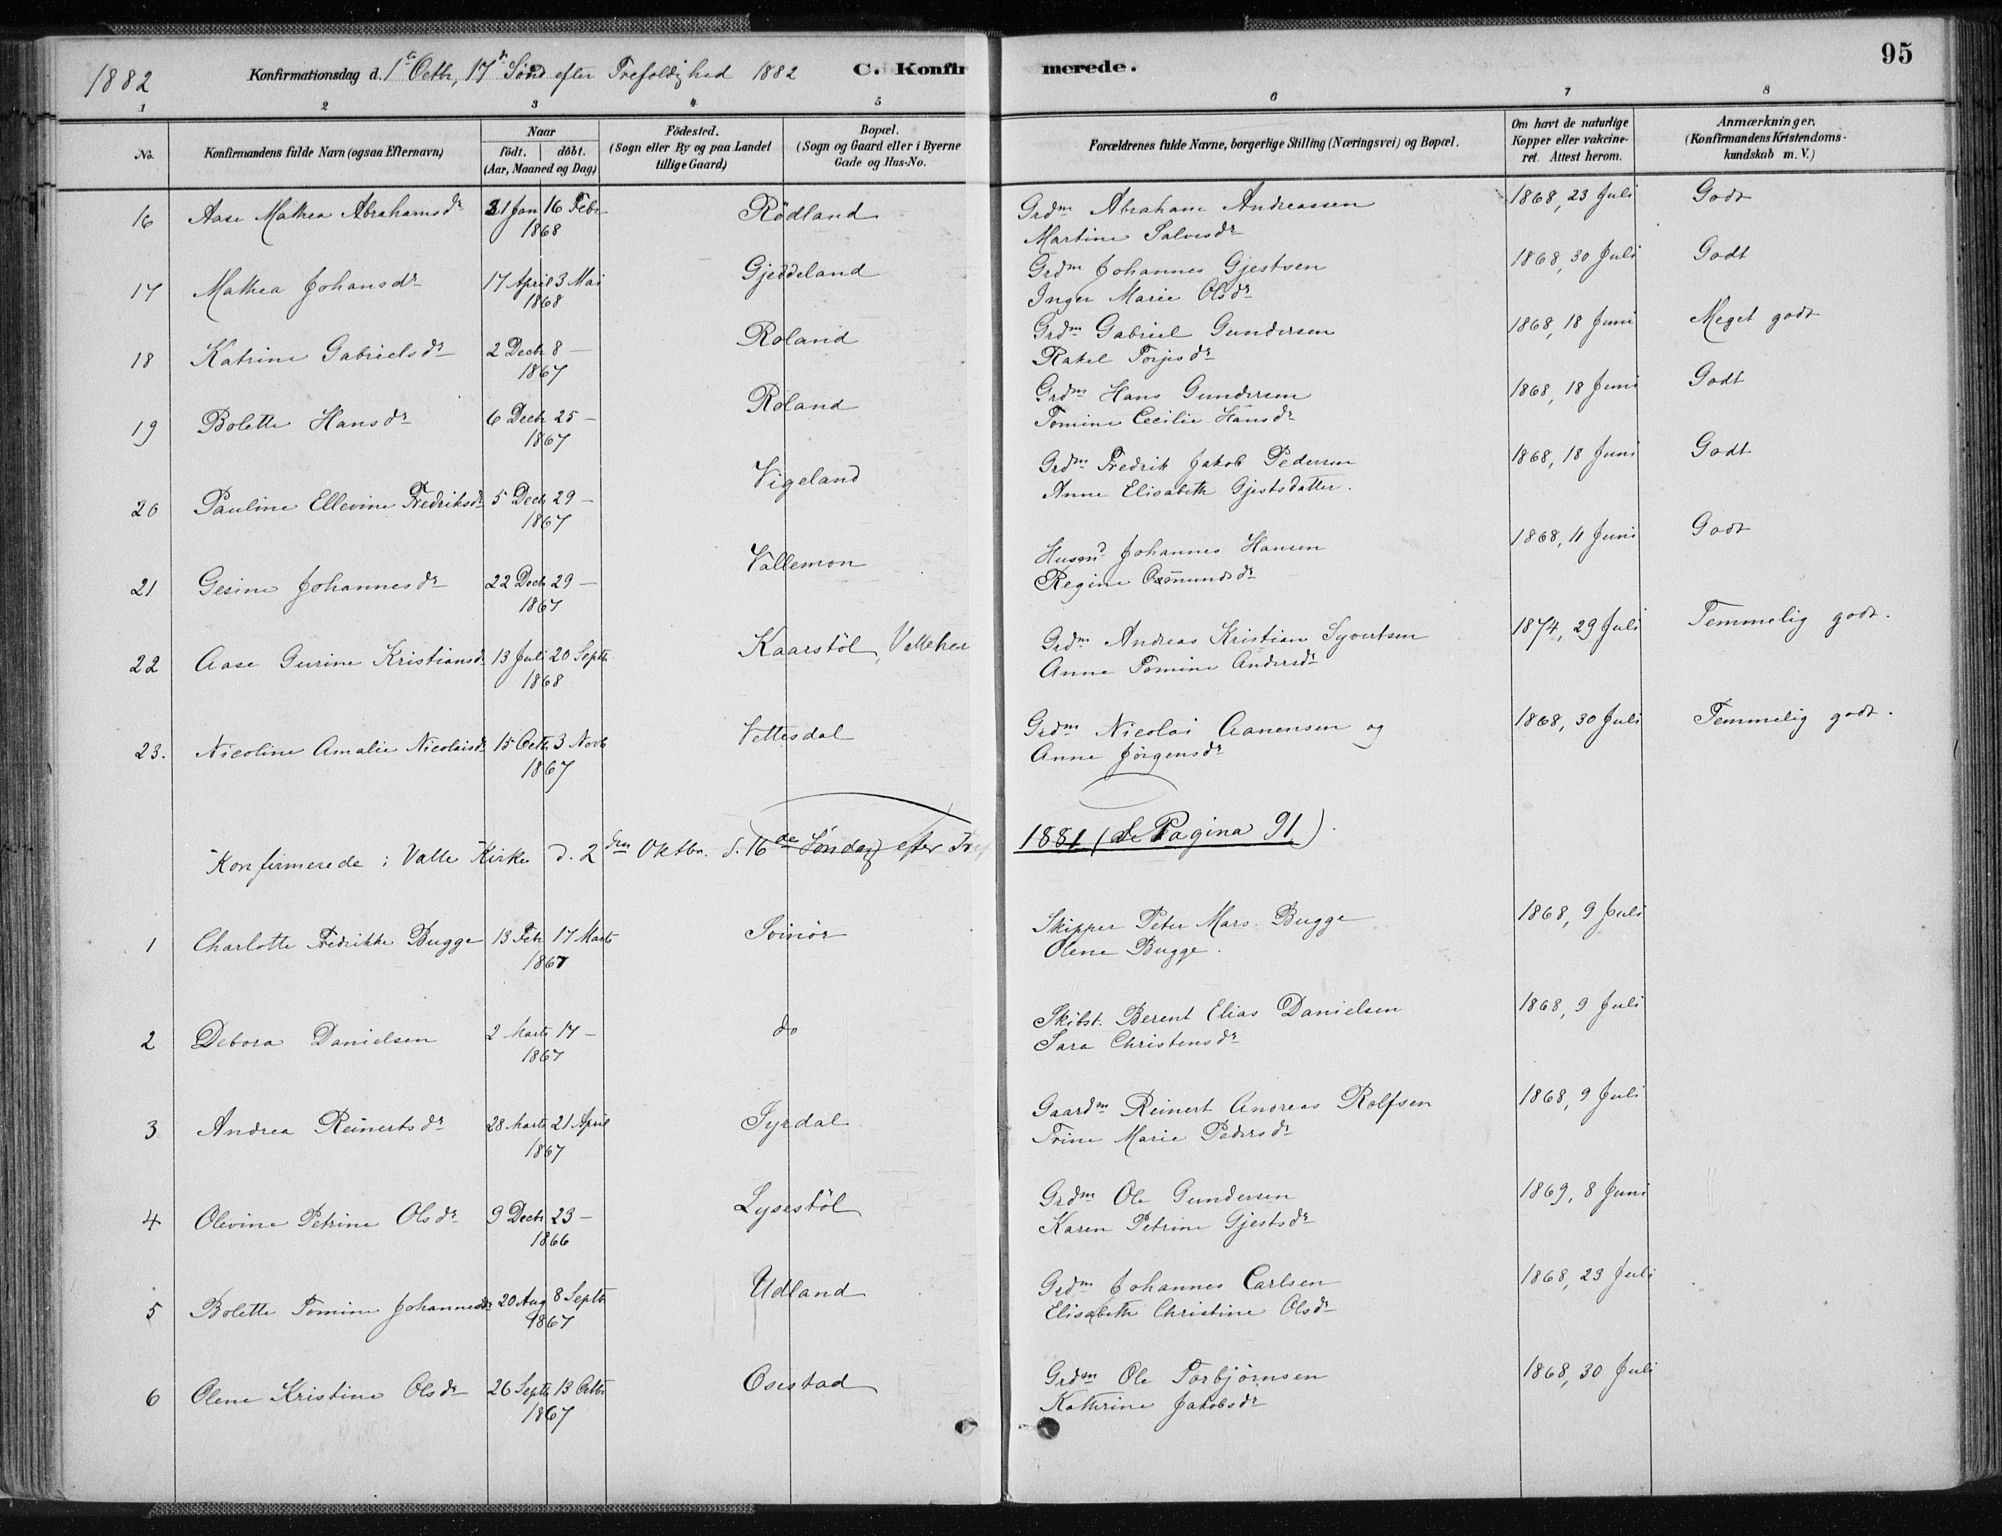 1882 Konfirmationsdag d. 1ste Octbr, 17d Sønd. efter Trefoldighed 1882 C. Konfirmerede. 95
1 2 3 4 5 6 7 8
No. Konfirmandens fulde Navn (ogsaa Efternavn) Naar født. døbt. (Aar, Maaned og Dag) Födested. (Sogn eller By og paa Landet tillige Gaard) Bopæl. (Sogn og Gaard eller i Byerne Gade og Hus-No. Forældrenes fulde Navne, borgerlige Stilling (Næringsvei) og Bopæl. Om havt de naturlige Kopper eller vakcineret. Attest herom. Anmærkninger. (Konfirmandens Kristendomskundskab m. V.)
16 Aase Mathea Abrahamsdr 31 Jan 16 Febr 1868 Rödland Grdm Abraham Andreassen 1868, 23 Juli Godt
Martine Salvesdr
17 Mathea Johansdr 17 April 3 Mai 1868 Gjeddeland Grdm Johannes Gjestsen 1868, 30 Juli Godt
Inger Marie Olsdr
18 Katrine Gabrielsdr 2 Decb 8 — 1867 Roland Grdm Gabriel Gundersen 1868, 18 Juni Meget godt
Rakel Torjesdr
19 Bolette Hansdr 6 Decb 25 — 1867 Roland Grdm Hans Gundersen 1868, 18 Juni Godt
Tomine Cecilie Hansdr
20 Pauline Ellevine Fredriksdr 5 Decb 29 — 1867 Vigeland Grdm Fredrik Jakob Pedersen 1868, 18 Juni Godt
Anne Elisabeth Gjestsdatter.
21 Gesine Johannesdr 22 Decb 29 — 1867 Vallemon Husmd Johannes Hansen 1868, 11 Juni Godt
Regine Osmundsdr
22 Aase Gurine Kristiansdr 13 Juli 20 Septb 1868 Kaarstöl, Valleher Grdm Andreas Kristian Syvertsen 1874, 29 Juli Temmelig godt.
Anne Tomine Andersdr
23. Nicoline Amalie Nicolaisdr 15 Octb 3 Novb 1867 Vettesdal Grdm Nicolai Aanensen og 1868, 30 Juli Temmelig godt.
Anne Jörgensdr
Konfirmerede i Valle Kirke d. 2den Oktbr. d. 16de Søndag efter Tr 1881 (se Pagina 91).
1 Charlotte Fredrikke Bugge 13 Feb 17 Marts 1867 Svinör Skipper Peter Mars. Bugge 1868, 9 Juli
Olene Bugge.
2 Debora Danielsen 2 Marts 17 — 1867 do Skibst. Berent Elias Danielsen 1868, 9 Juli
Sara Christensdr
3 Andrea Reinertsdr 28 Marts 21 April 1867 Syrdal Gaardm Reinert Andreas Rolfsen 1868, 9 Juli
Trine Marie Pedersdr
4 Olevine Petrine Olsdr 9 Decb 23 — 1866 Lysestöl Grdm Ole Gundersen 1869, 8 Juni
Karen Petrine Gjestsdr
5 Bolette Tomine Johannesdr 20 Aug 8 Septb 1867 Udland Grdm Johannes Carlsen 1868, 23 Juli
Elisabeth Christine Olsdr
6 Olene Kristine Olsdr 26 Septb 13 Octbr 1867 Osestad Grdm Ole Torbjörnsen 1868, 30 Juli
Kathrine Jakobsdr